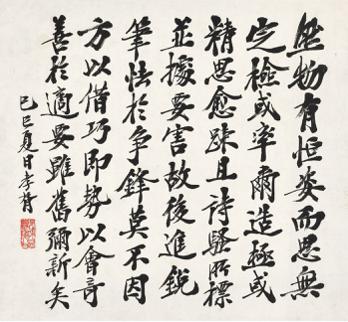 然物有恒姿而思無
定極或率爾造極或
精思愈疎且詩騷所標
並據要害故後進銳
筆怯於爭鋒莫不因
方以借巧即勢以會奇
善於適要雖舊彌新矣
己巳夏日孝胥